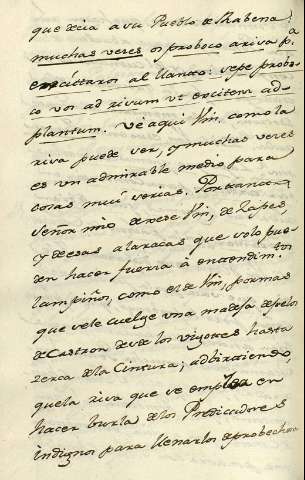 que decia a su Pueblo de Rabena:
muchas veces os proboco a risa p.ª
excittaros al llanto: sepe probo-
co vos ad risum vt excitem ad
plantum. Vè aqui Vm. como la
risa puede ser, y muchas veces
es vn admirable medio para
cosas mui serias. Portanto
señor mio dexese Vm. de
y de esas alaracas que solo pue-
den hacer fuerza à entendim.tos
lampiños, como el de Vm. por mas
que se le cuelge vna madeja de pelos
de Castron desde los vigotes hasta
zerca de la Cintura; adbirtiendo,
que la risa que se emplea en
hacer burla de los Predicadores
indignos para llenarlos de probechosa